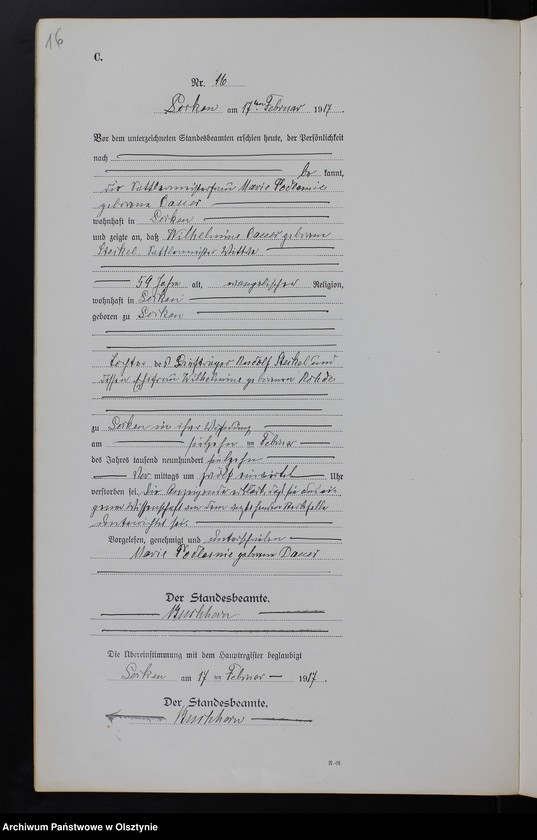 16
C.
Nr. 16
Sorken am 17ten Februar 1917.
Vor dem unterzeichneten Standesbeamten erschien heute, der Persönlichkeit
nach
be kannt,
die Sattlermeisterfrau Marie Podlasnie
geborene Dauer
wohnhaft in Sorken
und zeigte an, daß Wilhelmine Dauer geborene
Sattlermeister Wittwe
59 Jahre alt, evangelischer Religion,
wohnhaft in Sorken
geboren zu Sorken
Tochter des Rudolf und
dessen Ehefrau Wilhelmine geborenen Rohde
zu Sorken in ihrer Wohnung
am im Februar
des Jahres tausend neunhundert siebzehn
Vor mittags um zwölf einviertel Uhr
verstorben sei. Die Anzeigende erklärt, daß sie aus ei-
gener Wissenschaft von dem Sterbefalle
unterrichtet sei.
Vorgelesen, genehmigt und unterschrieben
Marie Podlasnie geborene Dauer
Der Standesbeamte.
Burkhorn
Die Übereinstimmung mit dem Hauptregister beglaubigt
Sorken am 17 ten Februar 1917.
Der Standesbeamte.
Burkhorn
Archiwum Państwowe w Olsztynie